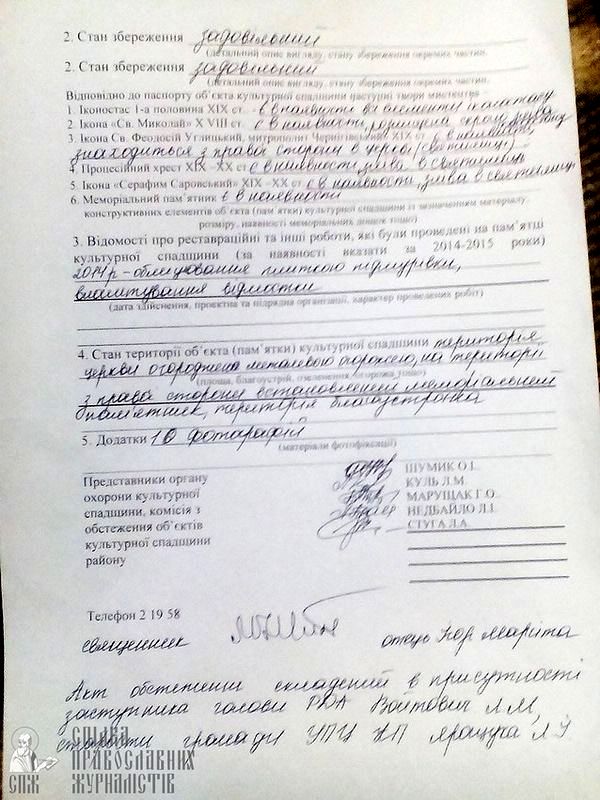 2. Стан збереження задовільний
(детальний опис вигляду, стану збереження окремих частин,
2. Стан збереження задовільний
(детальний опис вигляду, стану збереження окремих частин,
Відповідно до паспорту об'єкта культурної спадщини наступні твори мистецтва
1. Іконостас 1-а половина XIX ст. є в наявності
2. Ікона «Св. Миколай» X VIII ст. є в наявності,
3. Ікона Св. Феодосій Углицький, митрополит Чернігівський XIX ст є в наявності,
знаходиться з правої сторони в церкві (святилищі)
4. Процесійний хрест XIX –XX ст є в наявності, зліва в святилищі
5. Ікона «Серафим Саровський» XIX –XX ст є в наявності, зліва в святилищі
6. Меморіальний пам'ятник є в наявності
конструктивних елементів об'єкта (пам ятки) культурної спадщини із зазначенням матеріалу
розміру, наявності меморіальних дошок тощо)
3. Відомості про реставраційні та інші роботи, які були проведені на пам'ятці
культурної спадщини (за наявності вказати за 2014-2015 роки)
2014р - облицювання плиткою підмурівки,
влаштування відмостки
(дата здійснення, проектна та підрядна організації, характер проведених робіт)
4. Стан території об'єкта (пам'ятки) культурної спадщини територія
церкви огороджена металевою огорожею, на території
(площа, благоустрій, озеленення, огорожа тощо)
з правої сторони встановлений меморіальний
територія благоустроєна
5. Додатки 10 фотографій
(матеріали фотофіксації)
Представники органу
охорони культурної
спадщини, комісія з
обстеження об'єктів
культурної спадщини
району
ШУМИК О.І.
КУЛЬ Л.М.
МАРУЩАК Г.О.
НЕДБАЙЛО Л.І.
СТУГА Л.А.
Телефон 2 19 58
священник отець Ігор Маріта
Акт обстеження складений в присутності
заступника голови РДА Войтович Л.М,
старости громади УПЦ КП
СПІЛКА
ПРАВОСЛАВНИХ
ЖУРНАЛІСТІВ
СПЖ